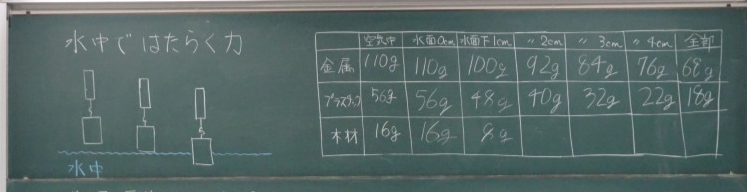 水中ではたらく力
水中
空気中 水面0cm 水面下1cm 〃2cm 〃3cm 〃4cm 全部
金属 110g 110g 100g 92g 84g 76g 68g
プラスチック 56g 56g 48g 40g 32g 22g 18g
木材 16g 16g 8g